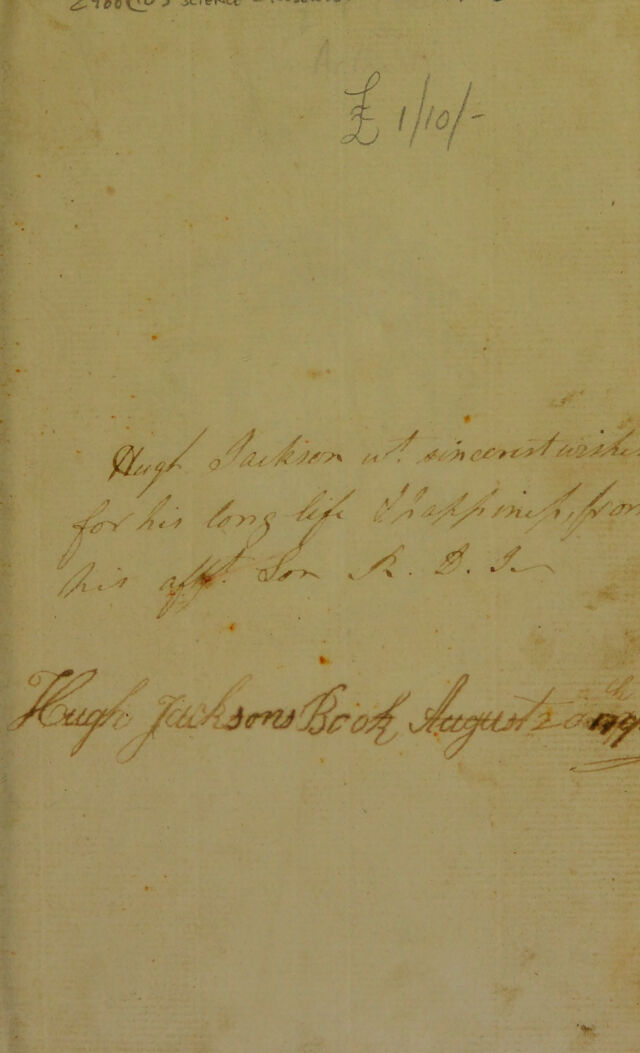 SCIENCE
£ 1/10/-
Hugh Jackson wt. sincerest wishes
for his long life & happiness, from
his afft. Son R. D. J.
Hugh Jacksons Book August 20th 179